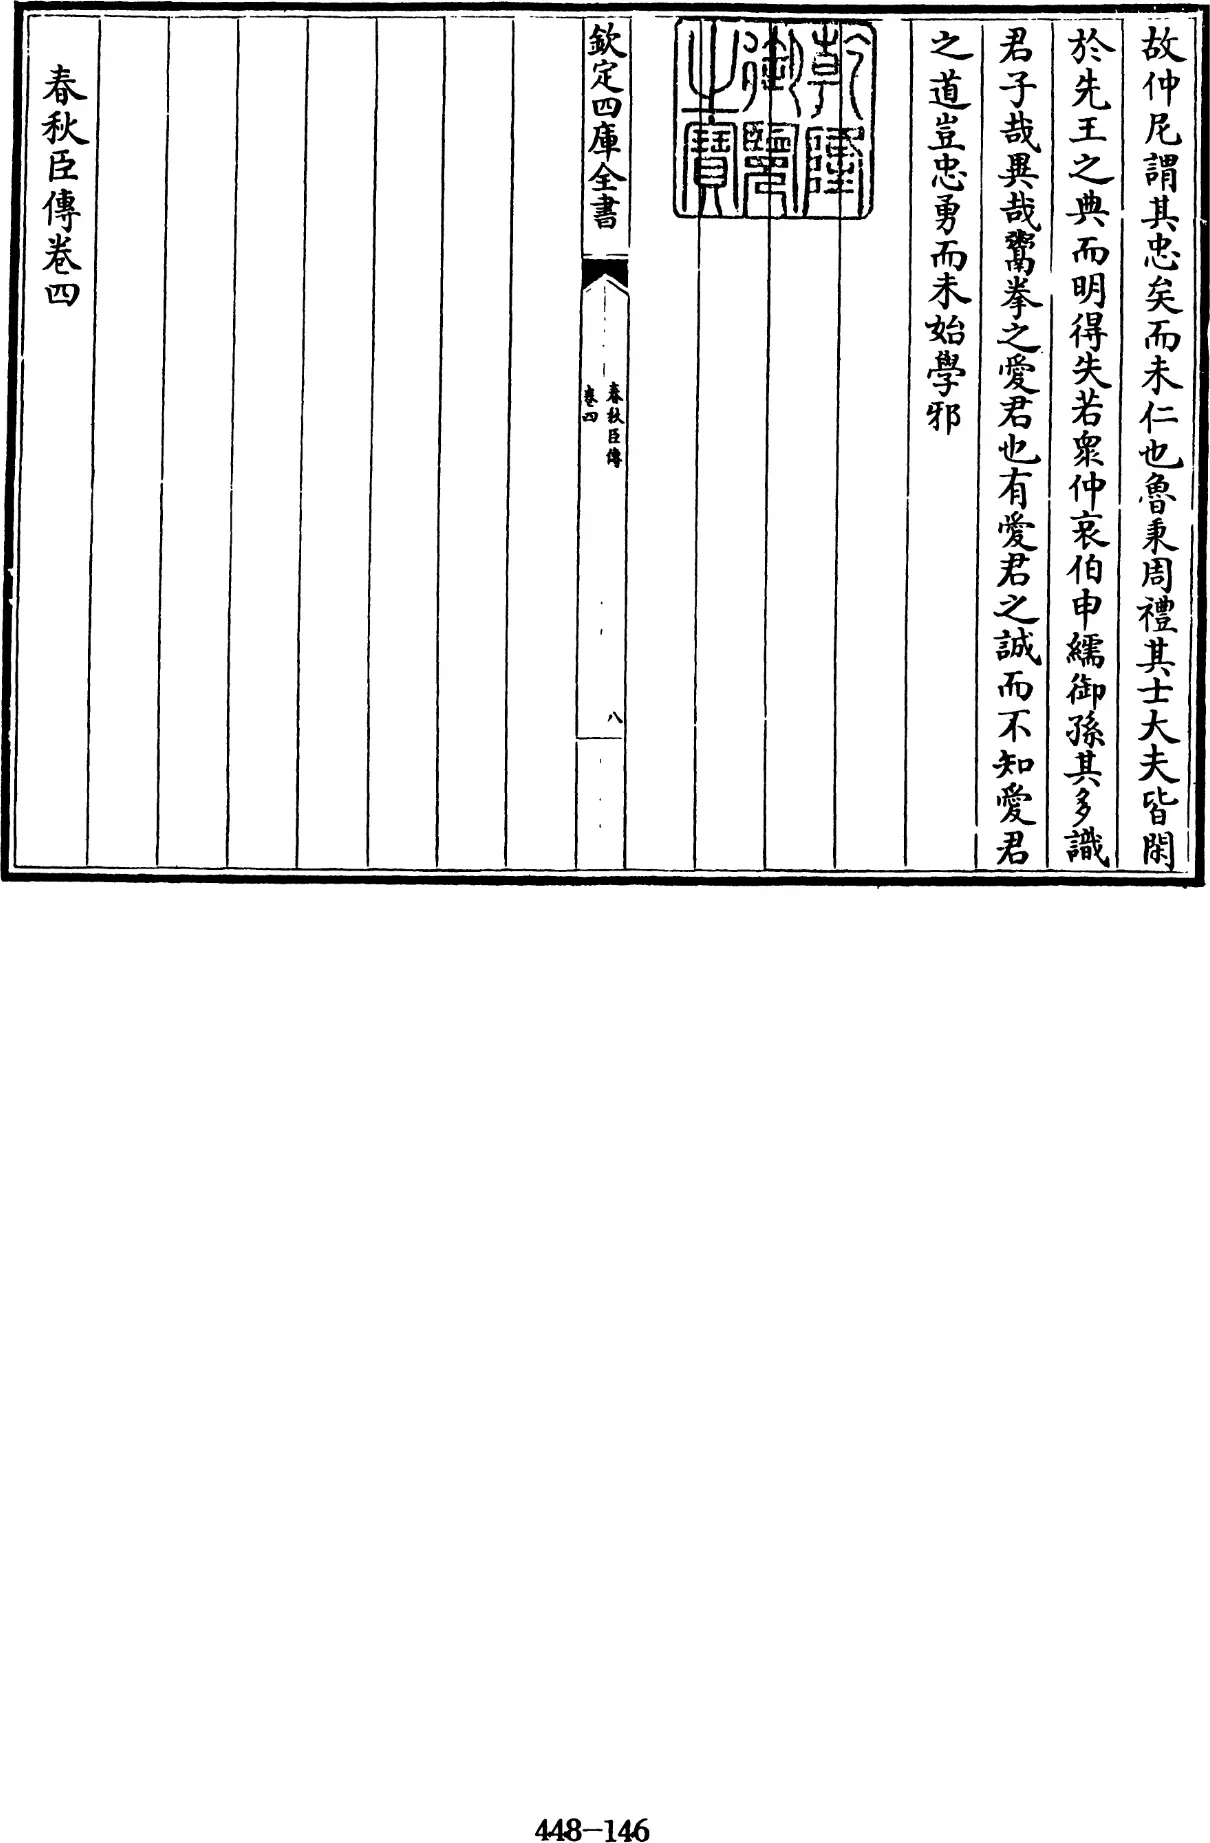 故仲尼謂其忠矣而未仁也魯秉周禮其士大夫皆閑
於先王之典而明得失若衆仲哀伯申繻御孫其多識
君子哉異哉鬻拳之愛君也有愛君之誠而不知愛君
之道豈忠勇而未始學邪
乾隆御覽之寶
欽定四庫全書
春秋臣傳
卷四
八
春秋臣傳卷四
448-146